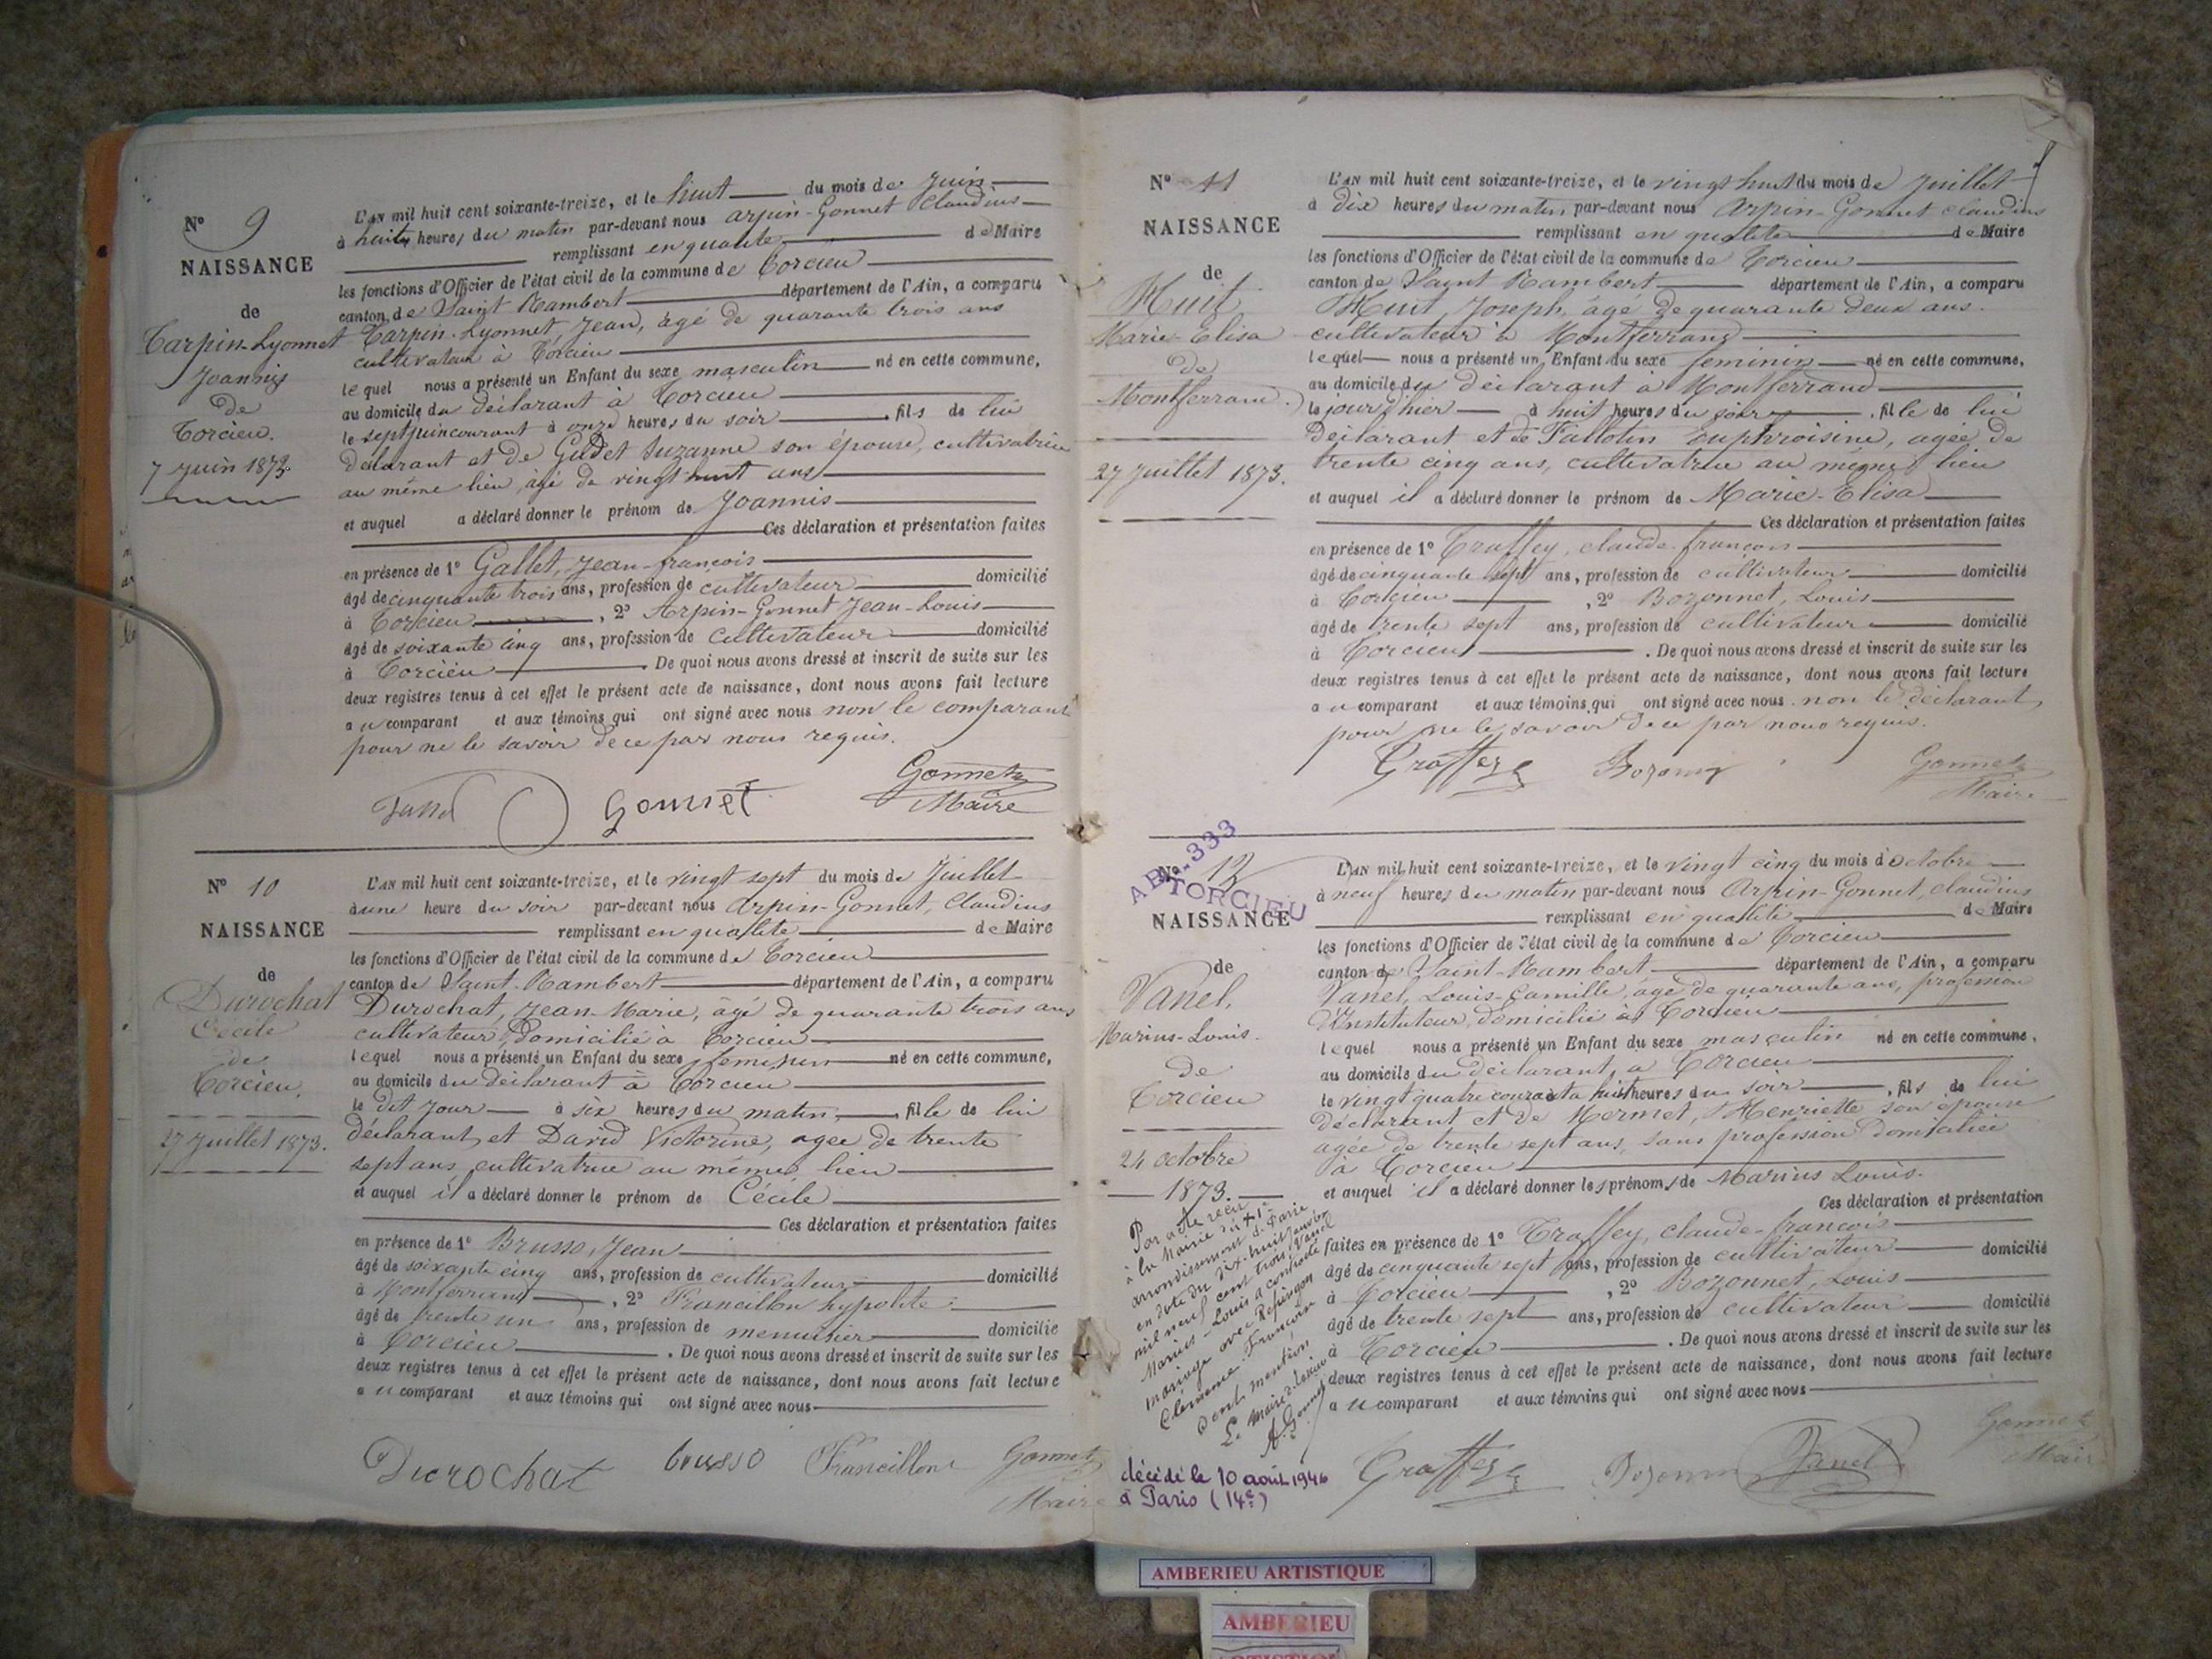 Nº 9
NAISSANCE
de
Carpin-Lyonnet
Joannis
de
Torcieu.
7 juin 1873.
L'AN mil huit cent soixante-treize, et le huit du mois de Juin
à huit heures du matin par-devant nous Arpin-Gonnet Claudius
remplissant en qualité de Maire
les fonctions d'Officier de l'état civil de la commune de Torcieu
canton de Saint Rambert département de l'Ain, a comparu
Carpin-Lyonnet, Jean, âgé de quarante trois ans
cultivateur à Torcieu
lequel nous a présenté un Enfant du sexe masculin né en cette commune,
au domicile du déclarant à Torcieu
le sept juin courant à onze heures du soir , fils de lui
déclarant et de Gudet Suzanne son épouse, cultivatrice
au même lieu, âgé de vingt huit ans
et auquel a déclaré donner le prénom de Joannis
Ces déclaration et présentation faites
en présence de 1º Gallet, Jean-françois
âgé de cinquante trois ans, profession de cultivateur domicilié
à Torcieu , 2º Arpin-Gonnet Jean-Louis
âgé de soixante cinq ans, profession de cultivateur domicilié
à Torcieu . De quoi nous avons dressé et inscrit de suite sur les
deux registres tenus à cet effet le présent acte de naissance, dont nous avons fait lecture
au comparant et aux témoins qui ont signé avec nous non le comparant
pour ne le savoir de ce par nous requis.
Gonnet Gonnet
Maire
Nº 10
NAISSANCE
de
Durochat
Cécile
de
Torcieu.
27 Juillet 1873.
L'AN mil huit cent soixante-treize, et le vingt sept du mois de Juillet
à une heure du soir par-devant nous Arpin-Gonnet, Claudius
remplissant en qualité de Maire
les fonctions d'Officier de l'état civil de la commune de Torcieu
canton de Saint-Rambert département de l'Ain, a comparu
Durochat, Jean-Marie, âgé de quarante trois ans
cultivateur, domicilié à Torcieu
lequel nous a présenté un Enfant du sexe féminin né en cette commune,
au domicile du déclarant à Torcieu
le dit jour à six heures du matin , fille de lui
déclarant, et David Victorine, agée de trente
sept ans, cultivatrice au même lieu
et auquel il a déclaré donner le prénom de Cécile
Ces déclaration et présentation faites
en présence de 1º Brusso, Jean
âgé de soixante cinq ans, profession de cultivateur domicilié
à Montferrand , 2º Francillon hypolite
âgé de trente un ans, profession de menuisier domicilié
à Torcieu . De quoi nous avons dressé et inscrit de suite sur les
deux registres tenus à cet effet le présent acte de naissance, dont nous avons fait lecture
au comparant et aux témoins qui ont signé avec nous
Durochat brusso Francillon Gonnet
Maire
Nº 11
NAISSANCE
de
Huit
Marie-Elisa
de
Montferrand.
27 Juillet 1873.
L'AN mil huit cent soixante-treize, et le vingt huit du mois de Juillet
à dix heures du matin par-devant nous Arpin-Gonnet claudius
remplissant en qualité de Maire
les fonctions d'Officier de l'état civil de la commune de Torcieu
canton de Saint Rambert département de l'Ain, a comparu
Huit, Joseph, âgé de quarante deux ans.
cultivateur à Montferrand
lequel nous a présenté un Enfant du sexe féminin né en cette commune,
au domicile du déclarant à Montferrand
le jour d'hier à huit heures du soir , fille de lui
déclarant et de euphroisine, agée de
trente cinq ans, cultivatrice au même lieu
et auquel il a déclaré donner le prénom de Marie-Elisa
Ces déclaration et présentation faites
en présence de 1º Traffey, claude-françois
âgé de cinquante sept ans, profession de cultivateur domicilié
à Torcieu , 2º Bozonnet, Louis
âgé de trente sept ans, profession de cultivateur domicilié
à Torcieu . De quoi nous avons dressé et inscrit de suite sur les
deux registres tenus à cet effet le présent acte de naissance, dont nous avons fait lecture
au comparant et aux témoins qui ont signé avec nous non le déclarant
pour ne le savoir de ce par nous requis.
Gonnet
Maire
AB-333
TORCIEU
Nº 12
NAISSANCE
de
Vanel,
Marius-Louis.
de
Torcieu
24 octobre
1873.
Par acte reçu
à la Mairie du
arrondissement de Paris
en date du dix-huit
mil neuf cent trois, Vanel
Marius-Louis a contracté
mariage avec
Clémence-Françoise
Dont mention
Le Maire de Torcieu
décédé le 10 août 1946
à Paris (14e)
L'AN mil huit cent soixante-treize, et le vingt cinq du mois d'octobre
à neuf heures du matin par-devant nous Arpin-Gonnet, Claudius
remplissant en qualité de Maire
les fonctions d'Officier de l'état civil de la commune de Torcieu
canton de Saint-Rambert département de l'Ain, a comparu
Vanel, Louis-Camille, âgé de quarante ans, profession
d'Instituteur, domicilié à Torcieu
lequel nous a présenté un Enfant du sexe masculin né en cette commune,
au domicile du déclarant, à Torcieu
le vingt quatre courant à huit heures du soir , fils de lui
déclarant et de Mermet, Henriette son épouse
agée de trente sept ans, sans profession domiciliée
à Torcieu
et auquel il a déclaré donner les prénoms de Marius Louis.
Ces déclaration et présentation
faites en présence de 1º Traffey, claude-françois
âgé de cinquante sept ans, profession de cultivateur domicilié
à Torcieu , 2º Bozonnet, Louis
âgé de trente sept ans, profession de cultivateur domicilié
à Torcieu . De quoi nous avons dressé et inscrit de suite sur les
deux registres tenus à cet effet le présent acte de naissance, dont nous avons fait lecture
au comparant et aux témoins qui ont signé avec nous
Vanel Gonnet
Maire
AMBERIEU ARTISTIQUE
AMBERIEU
ARTISTIQUE